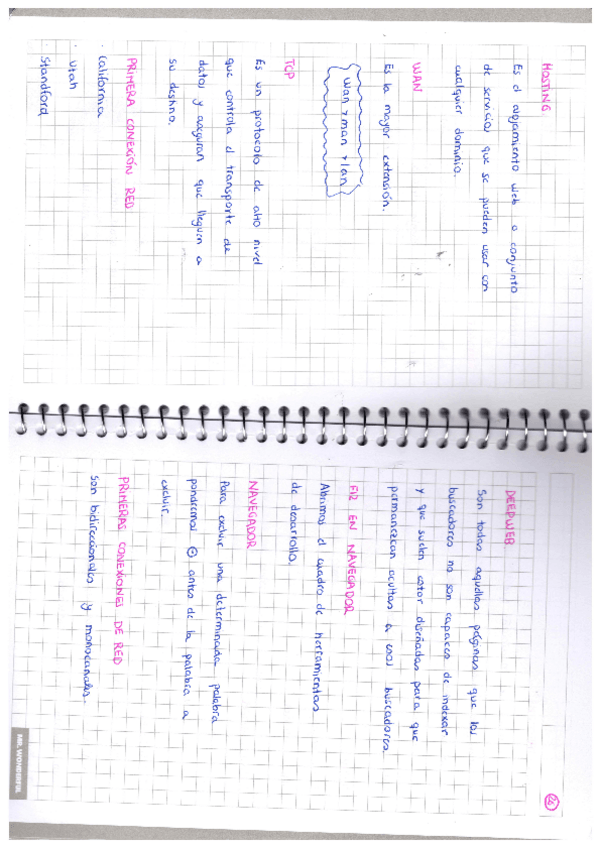 HOSTING
Es el alojamiento web o conjunto
de servicios que se pueden usar con
cualquier dominio.
WAN
Es la mayor extensión.
wan > man > lan
TCP
Es un protocolo de alto nivel
que controla el transporte de
datos y aseguran que lleguen a
su destino.
PRIMERA CONEXIÓN RED
California
Utah
Standford
24
DEEPWEB
Son todas aquellas páginas que los
buscadores no son capaces de indexar
y que suelen estar diseñadas para que
permanezcan ocultas a esos buscadores.
F12 EN NAVEGADOR
Abrimos el cuadro de herramientas
de desarrollo.
NAVEGADOR
Para excluir una determinada palabra
pondremos ⊖ antes de la palabra a
excluir.
PRIMERAS CONEXIONES DE RED
Son bidireccionales y monocanales.
MR. WONDERFUL